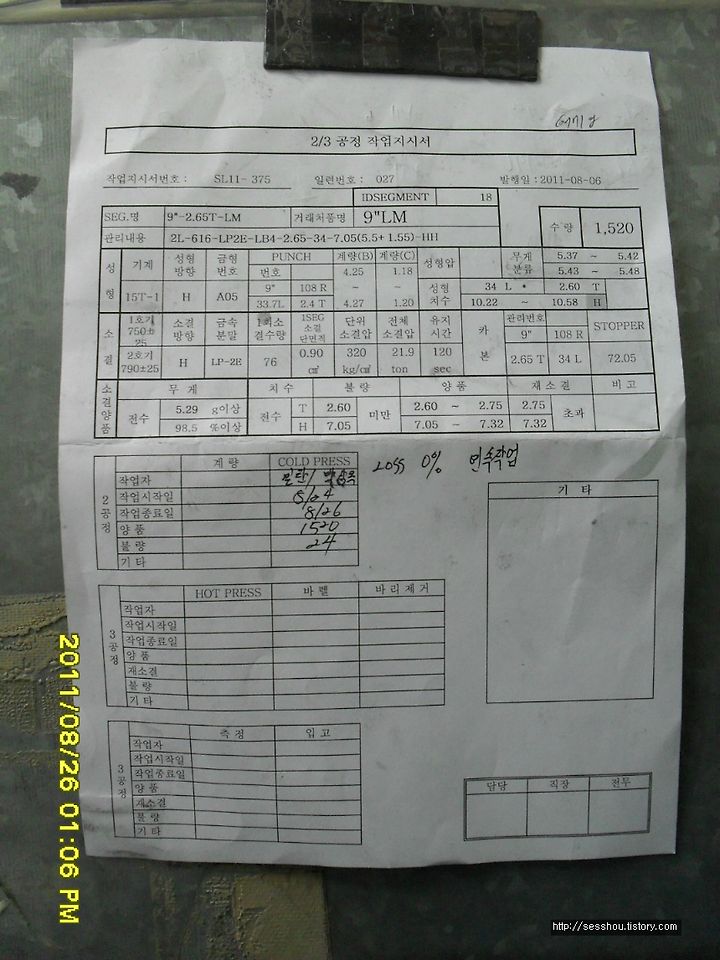 2/3 공정 작업지시서
작업지시서번호 : SL11- 375 일련번호 : 027 발행일 : 2011-08-06
IDSEGMENT 18
SEG.명 9"-2.65T-LM 거래처품명 9"LM 수량 1,520
관리내용 2L-616-LP2E-LB4-2.65-34-7.05(5.5+1.55)-HH
성형 기계 성형방향 금형번호 PUNCH 계량(B) 계량(C) 성형압 무게분류 5.37 ~ 5.42
번호 4.25 1.18 5.43 ~ 5.48
15T-1 H A05 9" 108 R ~ ~ 성형치수 34 L * 2.60 T
33.7L 2.4 T 4.27 1.20 10.22 ~ 10.58 H
소결 1호기 750±25 소결방향 금속분말 1회소결수량 1SEG 소결단면적 단위소결압 전체소결압 유지시간 카본 관리번호 STOPPER
9" 108 R
2호기 790±25 H LP-2E 76 0.90 ㎠ 320 kg/㎠ 21.9 ton 120 sec 2.65 T 34 L 72.05
소결양품 무게 치수 불량 양품 재소결 비고
전수 5.29 g이상 전수 T 2.60 미만 2.60 ~ 2.75 2.75 초과
98.5 %이상 H 7.05 7.05 ~ 7.32 7.32
2공정 계량 COLD PRESS
작업자
작업시작일 8/24
작업종료일 8/26
양품 1520
불량 24
기타
loss 0% 연속작업
기타
3공정 HOT PRESS 바렐 바리제거
작업자
작업시작일
작업종료일
양품
재소결
불량
기타
3공정 측정 입고
작업자
작업시작일
작업종료일
양품
재소결
불량
기타
담당 직장 전무
2011/08/26 01:06 PM
http://sesshou.tistory.com